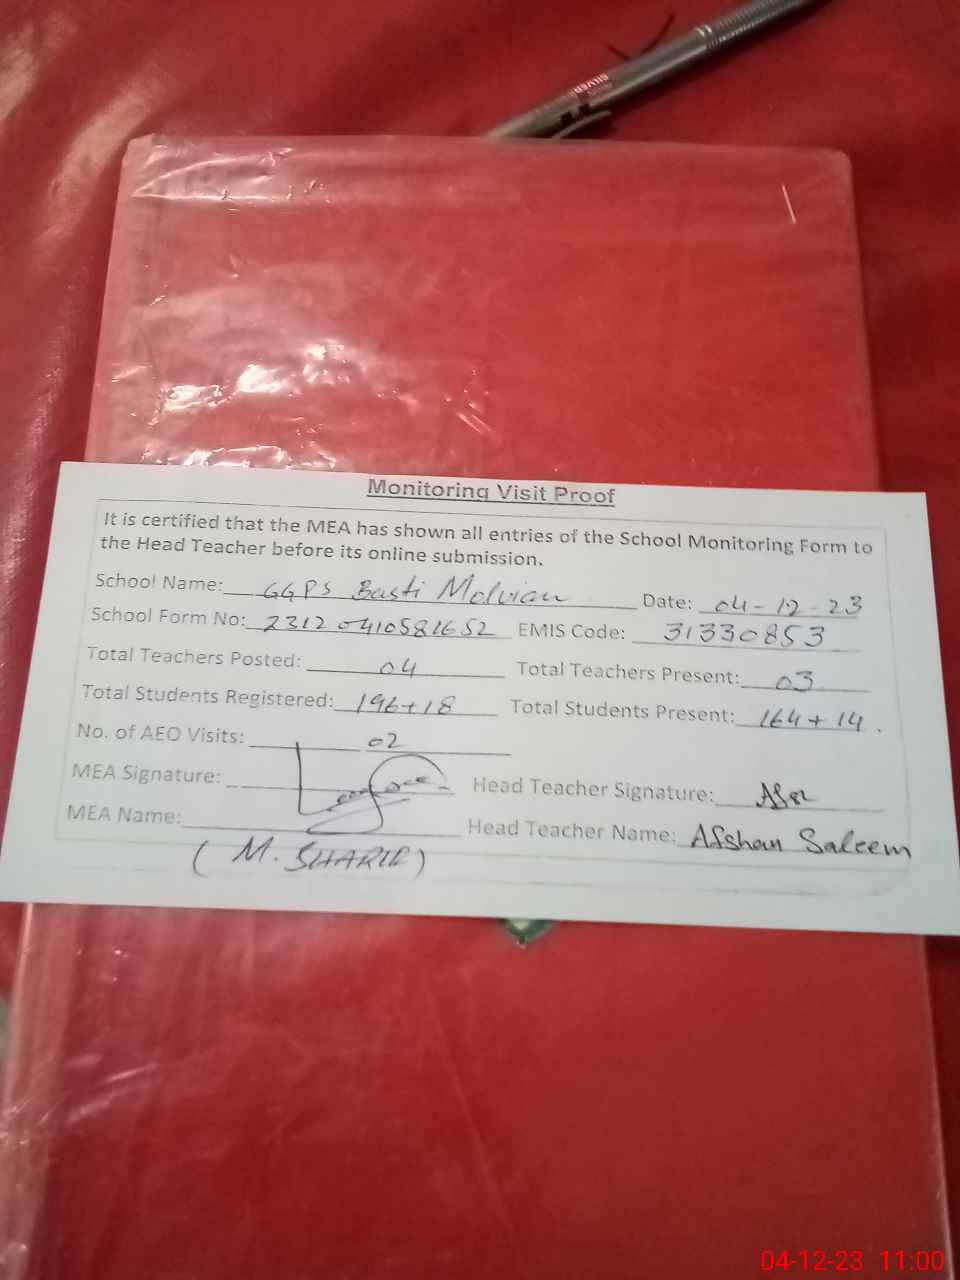 SILVER
Monitoring Visit Proof
It is certified that the MEA has shown all entries of the School Monitoring Form to
the Head Teacher before its online submission.
School Name: GGPS Basti Molvian Date: 04-12-23
School Form No: 23120410581652 EMIS Code: 31330853
Total Teachers Posted: 04 Total Teachers Present: 03
Total Students Registered: 196+18 Total Students Present: 164+14.
No. of AEO Visits: 02
MEA Signature: Head Teacher Signature:
MEA Name: Head Teacher Name: Afshan Saleem
(M. SHARIF)
04-12-23 11:00